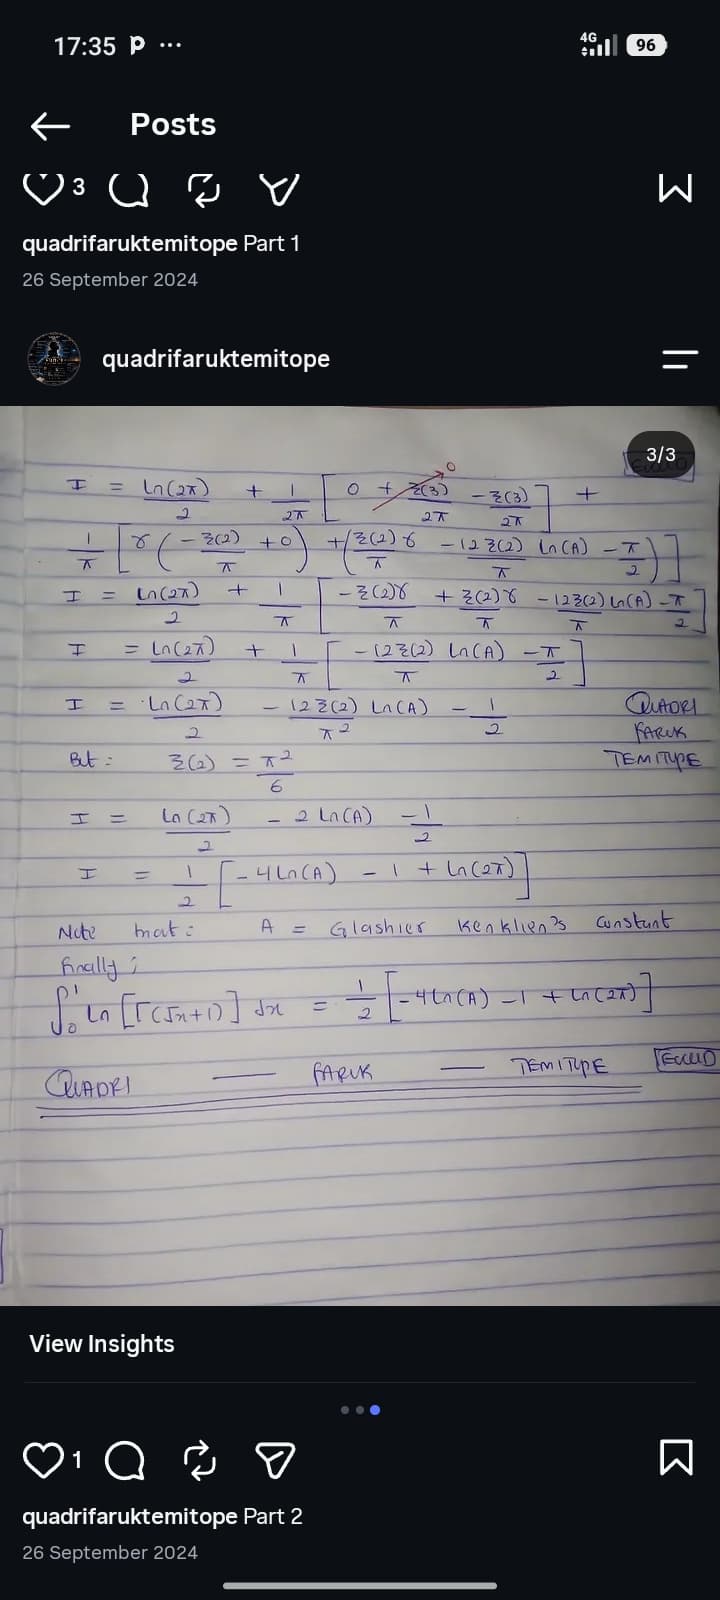 17:35 P ...
4G 96
Posts
3
quadrifaruktemitope Part 1
26 September 2024
quadrifaruktemitope
3/3
I = ln(2π)/2 + 1/2π [ 0 + ξ(3)/2π - ξ(3)/2π ] +
0
1/π [ γ ( - ξ(2)/π + 0 ) + ( ξ(2)γ/π - 12ξ(2) ln(A)/π - π/2 ) ]
I = ln(2π)/2 + 1/π [ - ξ(2)γ/π + ξ(2)γ/π - 12ξ(2) ln(A)/π - π/2 ]
I = ln(2π)/2 + 1/π [ - 12ξ(2) ln(A)/π - π/2 ]
I = ln(2π)/2 - 12ξ(2) ln(A)/π² - 1/2
QUADRI
FARUK
TEMITOPE
But : ξ(2) = π²/6
I = ln(2π)/2 - 2 ln(A) - 1/2
I = 1/2 [ - 4 ln(A) - 1 + ln(2π) ]
Note that : A = Glashier Kenklien's Constant
finally ;
∫₀¹ ln [Γ(√x+1)] dx = 1/2 [ - 4 ln(A) - 1 + ln(2π) ]
QUADRI — FARUK — TEMITOPE EUCLID
View Insights
1
quadrifaruktemitope Part 2
26 September 2024